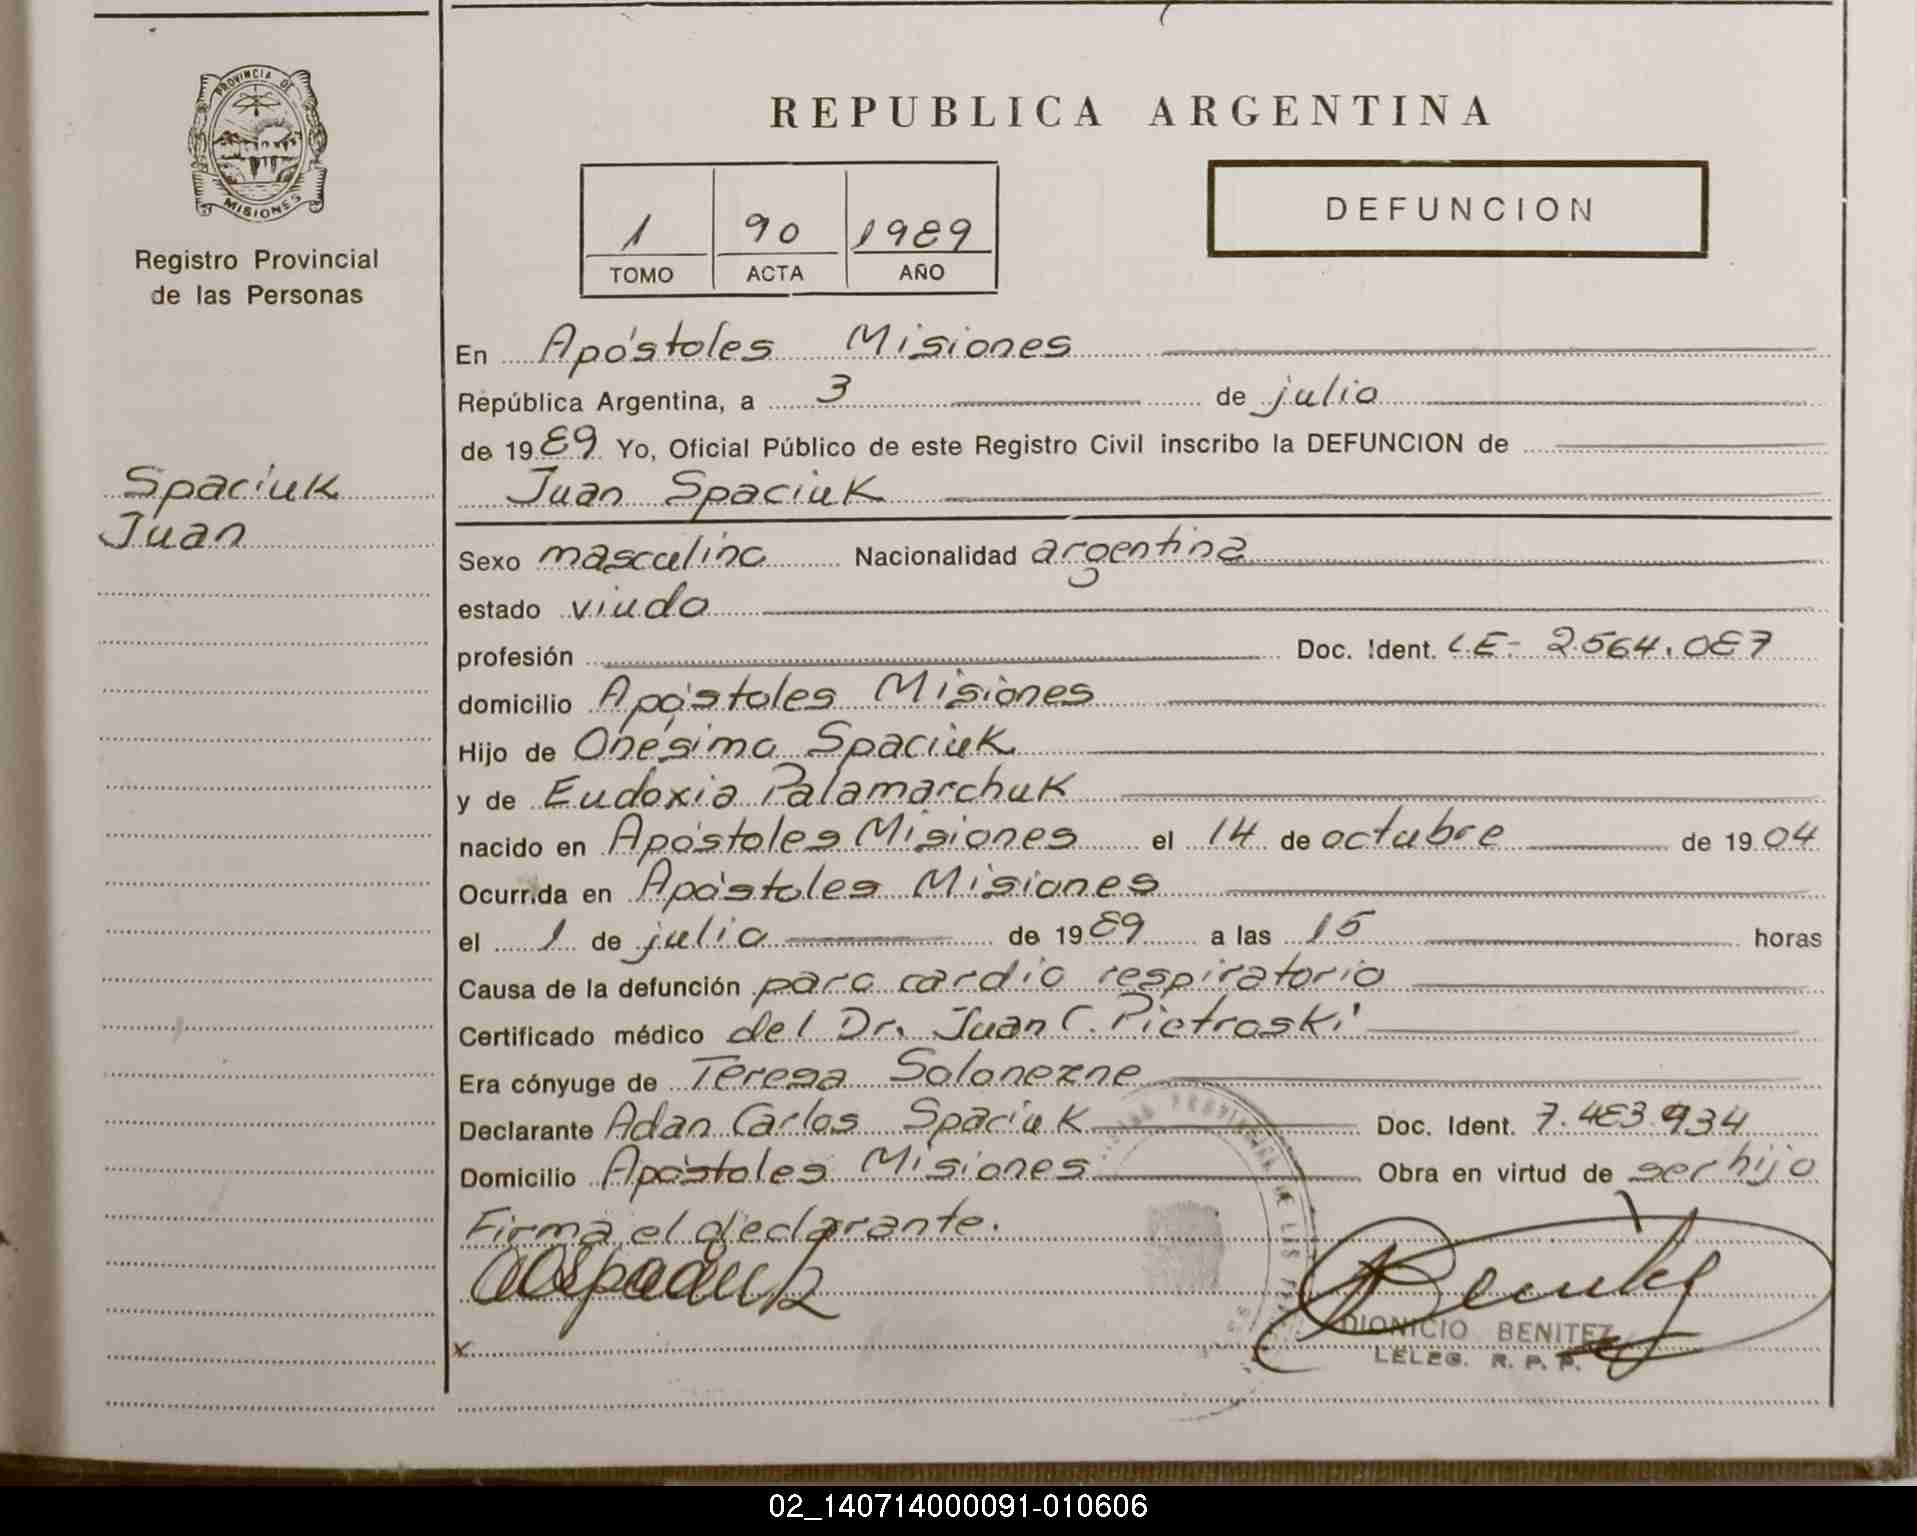 PROVINCIA DE
MISIONES
Registro Provincial
de las Personas
Spaciuk
Juan
REPUBLICA ARGENTINA
1 90 1989
TOMO ACTA AÑO
DEFUNCION
En Apóstoles Misiones
República Argentina, a 3 de julio
de 1989 Yo, Oficial Público de este Registro Civil inscribo la DEFUNCION de
Juan Spaciuk
Sexo masculino Nacionalidad argentina
estado viudo
profesión Doc. Ident. L.E- 2.564.087
domicilio Apóstoles Misiones
Hijo de Onésimo Spaciuk
y de Eudoxia Palamarchuk
nacido en Apóstoles Misiones el 14 de octubre de 1904
Ocurrida en Apóstoles Misiones
el 1 de julio de 1989 a las 15 horas
Causa de la defunción paro cardio respiratorio
Certificado médico del Dr. Juan C. Pietroski
Era cónyuge de Teresa Solonezne
Declarante Adan Carlos Spaciuk Doc. Ident. 7.483.934
Domicilio Apóstoles Misiones Obra en virtud de ser hijo
Firma el declarante.
DIONICIO BENITEZ
LELEG. R. P. P.
x
02_140714000091-010606